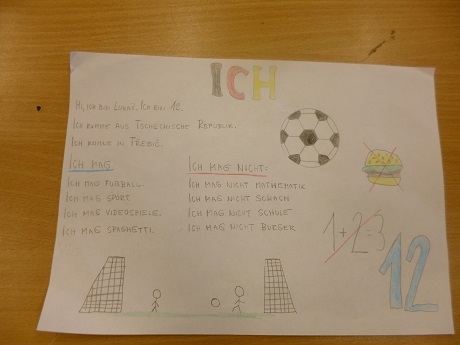 ICH
HI, ICH BIN LUKAŠ. ICH BIN 12.
ICH KOMME AUS TSCHECHISCHE REPUBLIK.
ICH WOHNE IN TŘEBÍČ.
ICH MAG
ICH MAG FUßBALL.
ICH MAG SPORT.
ICH MAG VIDEOSPIELE.
ICH MAG SPAGHETTI.
ICH MAG NICHT:
ICH MAG NICHT MATHEMATIK
ICH MAG NICHT SCHACH
ICH MAG NICHT SCHULE
ICH MAG NICHT BURGER
1+2=3
12